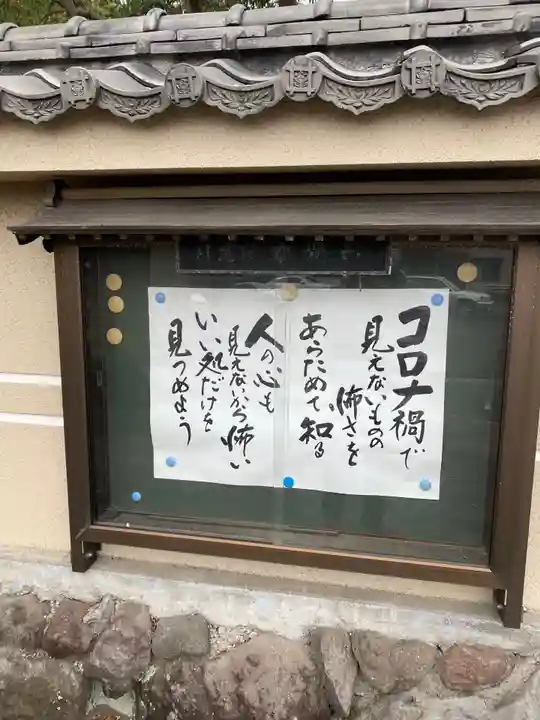 コロナ禍で
見えないものの
怖さを
あらためて知る
人の心も
見えないから怖い
いい処だけを
見つめよう